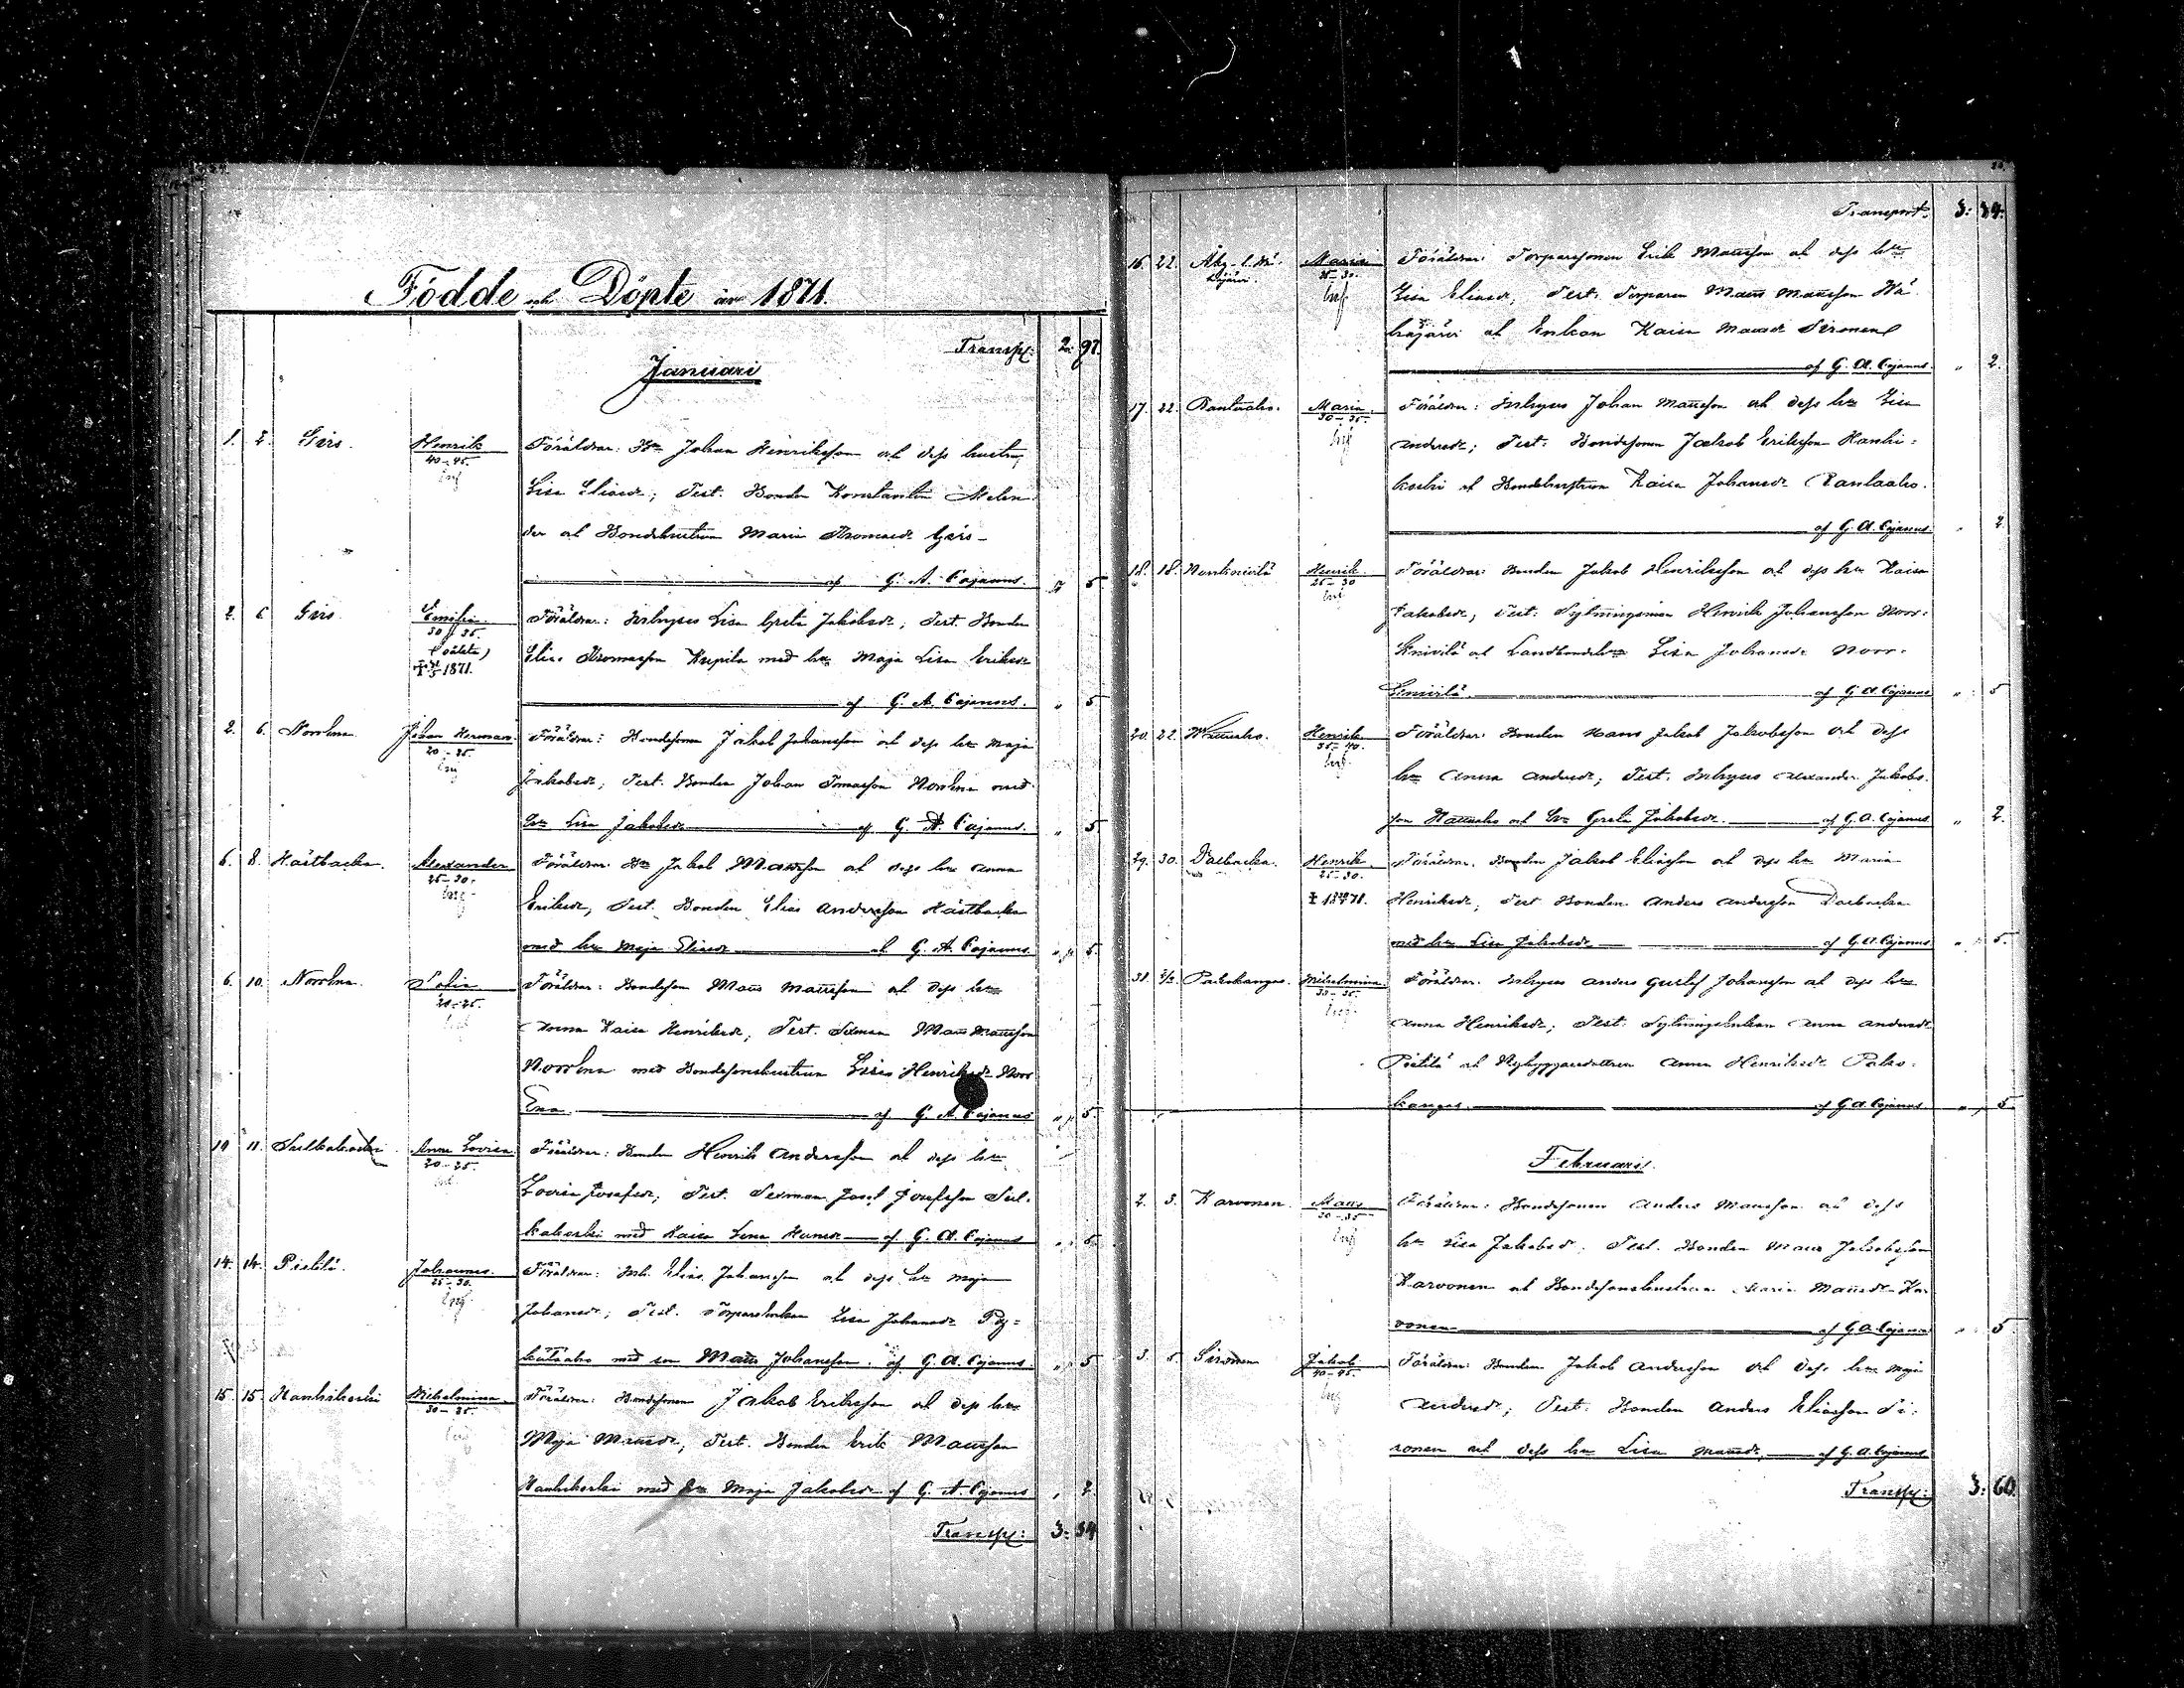 Födde och Döpte år 1871.
Transp: 2: 97.
Januari
1. 2. Girs. Henrik Föräldrar: Bn Johan Henriksson och dess hustru
40-45. Lisa Eliasdr; Test. Bonden Konstantin Melen
der och Bondehustrun Maria Thomasdr Girs
af G. A. Cajanus. " 5
2. 6 Girs. Emilia Föräldrar: Inhyses Lisa Greta Jakobsdr; Test. Bonden
30 35.
(oäkta) Elias Thomasson Krepila med hu Maja Lisa Eriksdr
1871.
af G. A. Cajanus. " 5
2. 6. Norrlna Johan Herman Föräldrar: Bondesonen Jakob Johansson och dess hu Maja
20-25. Jakobsdr; Test. Bonden Johan Tomasson Norrlna med
hu Lisa Jakobsdr af G. A. Cajanus. " 5
6. 8. Hästbacka. Alexander Föräldrar. Bn Jakob Mattsson och dess hu Anna
25-30. Eriksdr, Test. Bonden Elias Andersson Hästbacka
med hu Maja Eliasdr af G. A. Cajanus. " 5.
6. 10. Norrlna. Sofia Föräldrar: Bondeson Matts Mattsson och dess hu
20-25. Anna Kaisa Henriksdr, Test. Sexman Matts Mattsson
Norrlna med Bondesonshustrun Lisa Henriksdr Norr
lna. af G. A. Cajanus " 5
10 11. Sulkakoski. Anna Lovisa Föräldrar: Bonden Henrik Andersson och dess hu
20-25. Lovisa Josefsdr; Test. Sexman Josef Josefsson Sul-
kakoski med Kaisa Lena Hansdr af G. A. Cajanus " 5
14. 14. Pietilä. Johannes. Föräldrar: Inh. Elias Johansson och dess hu Maja
25-30. Johansdr; Test. Torpareenkan Lisa Johansdr Py-
med son Matts Johansson. af G. A. Cajanus. " 5
15. 15. Hanhikoski Wilhelmina Föräldrar: Bondesonen Jakob Eriksson och dess hu
30-35. Maja Mattsdr, Test. Bonden Erik Mattsson
Hanhikoski med hu Maja Jakobsdr af G. A. Cajanus , 2.
Transp: 3: 34
Transport. 3: 34.
16. 22. Maria Föräldrar: Torparesonen Erik Mattsson och dess hu
25-30. Lisa Eliasdr; Test. Torparen Matts Mattsson Wä
häjärvi och Enkan Kaisa Mattsdr Sironen
af G. A. Cajanus. " 2.
17. 22. Rantaaho. Maria. Föräldrar: Inhyses Johan Mattsson och dess hu Lisa
30-35. Andersdr; Test: Bondesonen Jakob Eriksson Hanhi-
koski och Bondehustrun Kaisa Johansdr Rantaaho.
af G. A. Cajanus. " 2.
18. 18. Norrknivilä Henrik Föräldrar: Bonden Jakob Henriksson och dess hu Kaisa
25-30 Jakobsdr, Test: Sytningsman Henrik Johansson Norr-
knivilä och Landbondehu Lisa Johansdr Norr-
knivilä. af G. A. Cajanus " 5
20. 22. Henrik Föräldrar: Bonden Hans Jakob Jakobsson och dess
35-40. hu Anna Andersdr; Test. Inhyses Alexander Jakobs-
son och hu Greta Jakobsdr. af G. A. Cajanus " 2.
29. 30. Dalbacka. Henrik Föräldrar. Bonden Jakob Eliasson och dess hu Maria
25-30. Henriksdr; Test Bonden Anders Andersson Dalbacka
med hu Lisa Jakobsdr af G. A. Cajanus " 5.
31. 2/2 Pahkakangas. Wilhelmina Föräldrar. Inhyses Anders Gustaf Johansson och dess hu
30-35. Anna Henriksdr; Test: Sytningsenkan Anna Andersdr
Pietilä och Nybyggaredottren Anna Henriksdr Pahka-
kangas. af G. A. Cajanus. " 5
Februari.
2. 3. Karvonen. Matts Föräldrar: Bondesonen Anders Mattsson och dess
30-35 hu Lisa Jakobsdr. Test. Bonden Matts Jakobsson
Karvonen och Bondesonshustrun Maria Mattsdr Kar
vonen af G. A. Cajanus " 5
3. 5. Sironen Jakob Föräldrar: Bonden Jakob Andersson och dess hu Maja
40-45. Andersdr; Test: Bonden Anders Eliasson Si-
ronen och dess hu Lisa Mattsdr, af G. A. Cajanus
Transp: 3: 60.